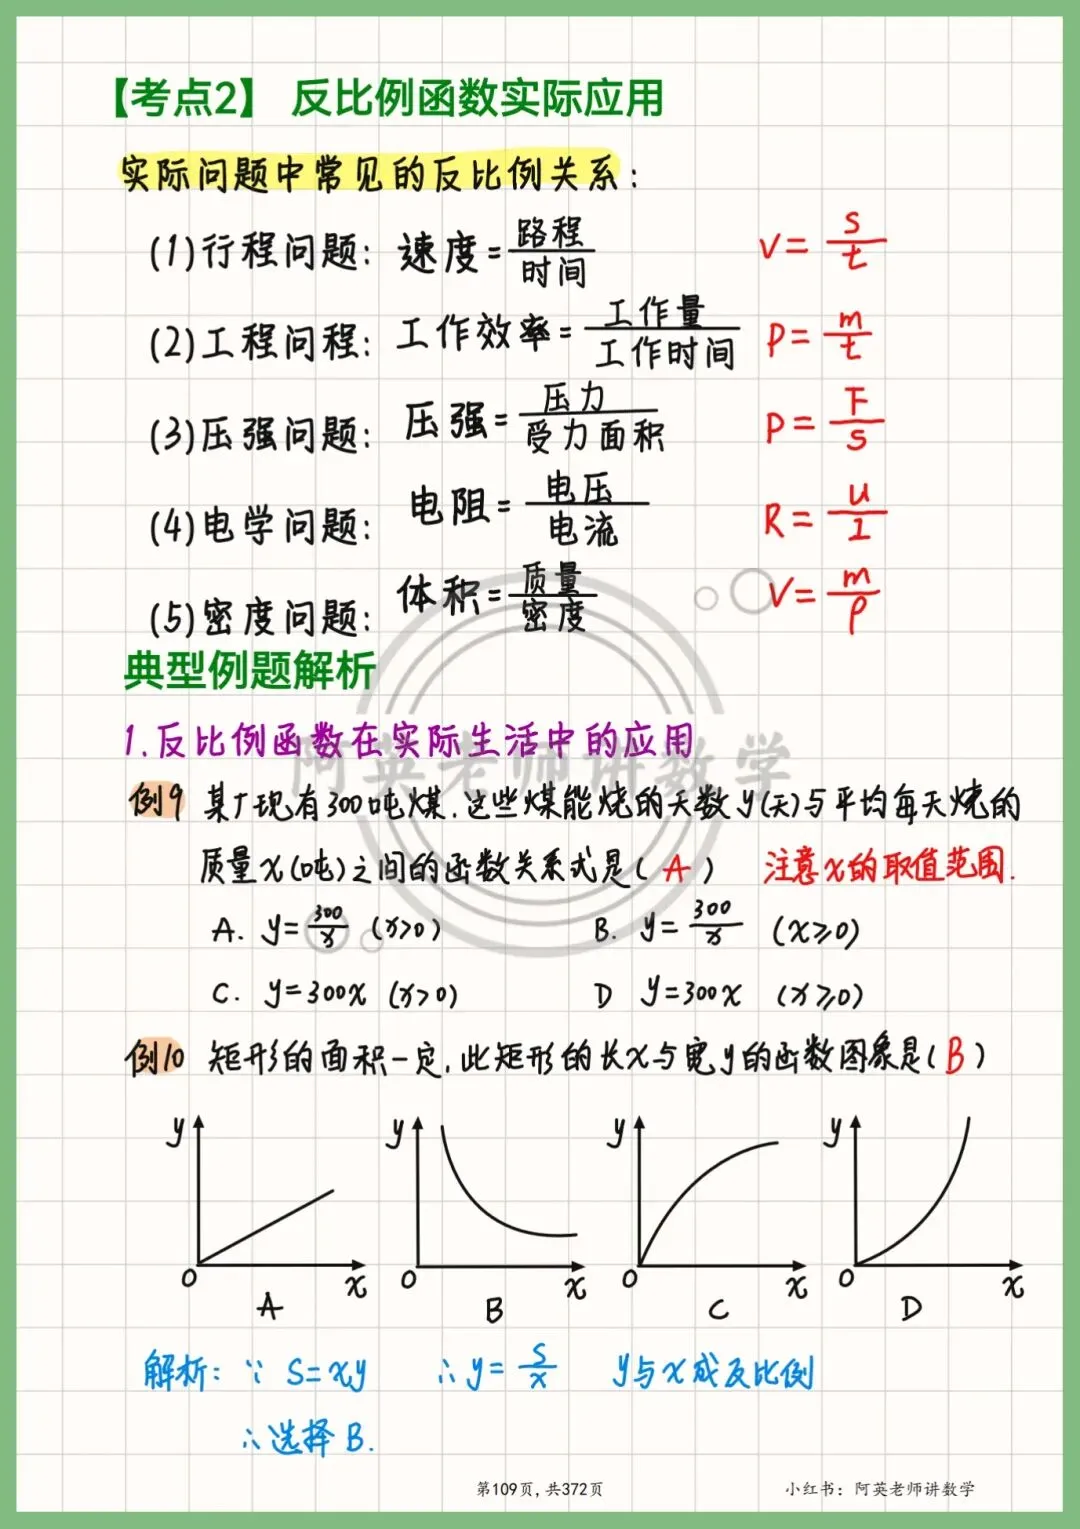 【考点2】 反比例函数实际应用
实际问题中常见的反比例关系:
(1)行程问题: 速度=路程/时间 V=S/t
(2)工程问程: 工作效率=工作量/工作时间 P=m/t
(3)压强问题: 压强=压力/受力面积 P=F/S
(4)电学问题: 电阻=电压/电流 R=U/I
(5)密度问题: 体积=质量/密度 V=m/ρ
典型例题解析
1.反比例函数在实际生活中的应用
阿英老师讲数学
例9 某厂现有300吨煤.这些煤能烧的天数y(天)与平均每天烧的
质量x(吨)之间的函数关系式是( A ) 注意x的取值范围.
A. y=300/x (x>0) B. y=300/x (x≥0)
C. y=300x (x>0) D y=300x (x≥0)
例10 矩形的面积一定.此矩形的长x与宽y的函数图象是( B )
y y y y
0 x 0 x 0 x 0 x
A B C D
解析: ∵ S=xy ∴y=S/x y与x成反比例
∴选择B.
第109页,共372页 小红书:阿英老师讲数学